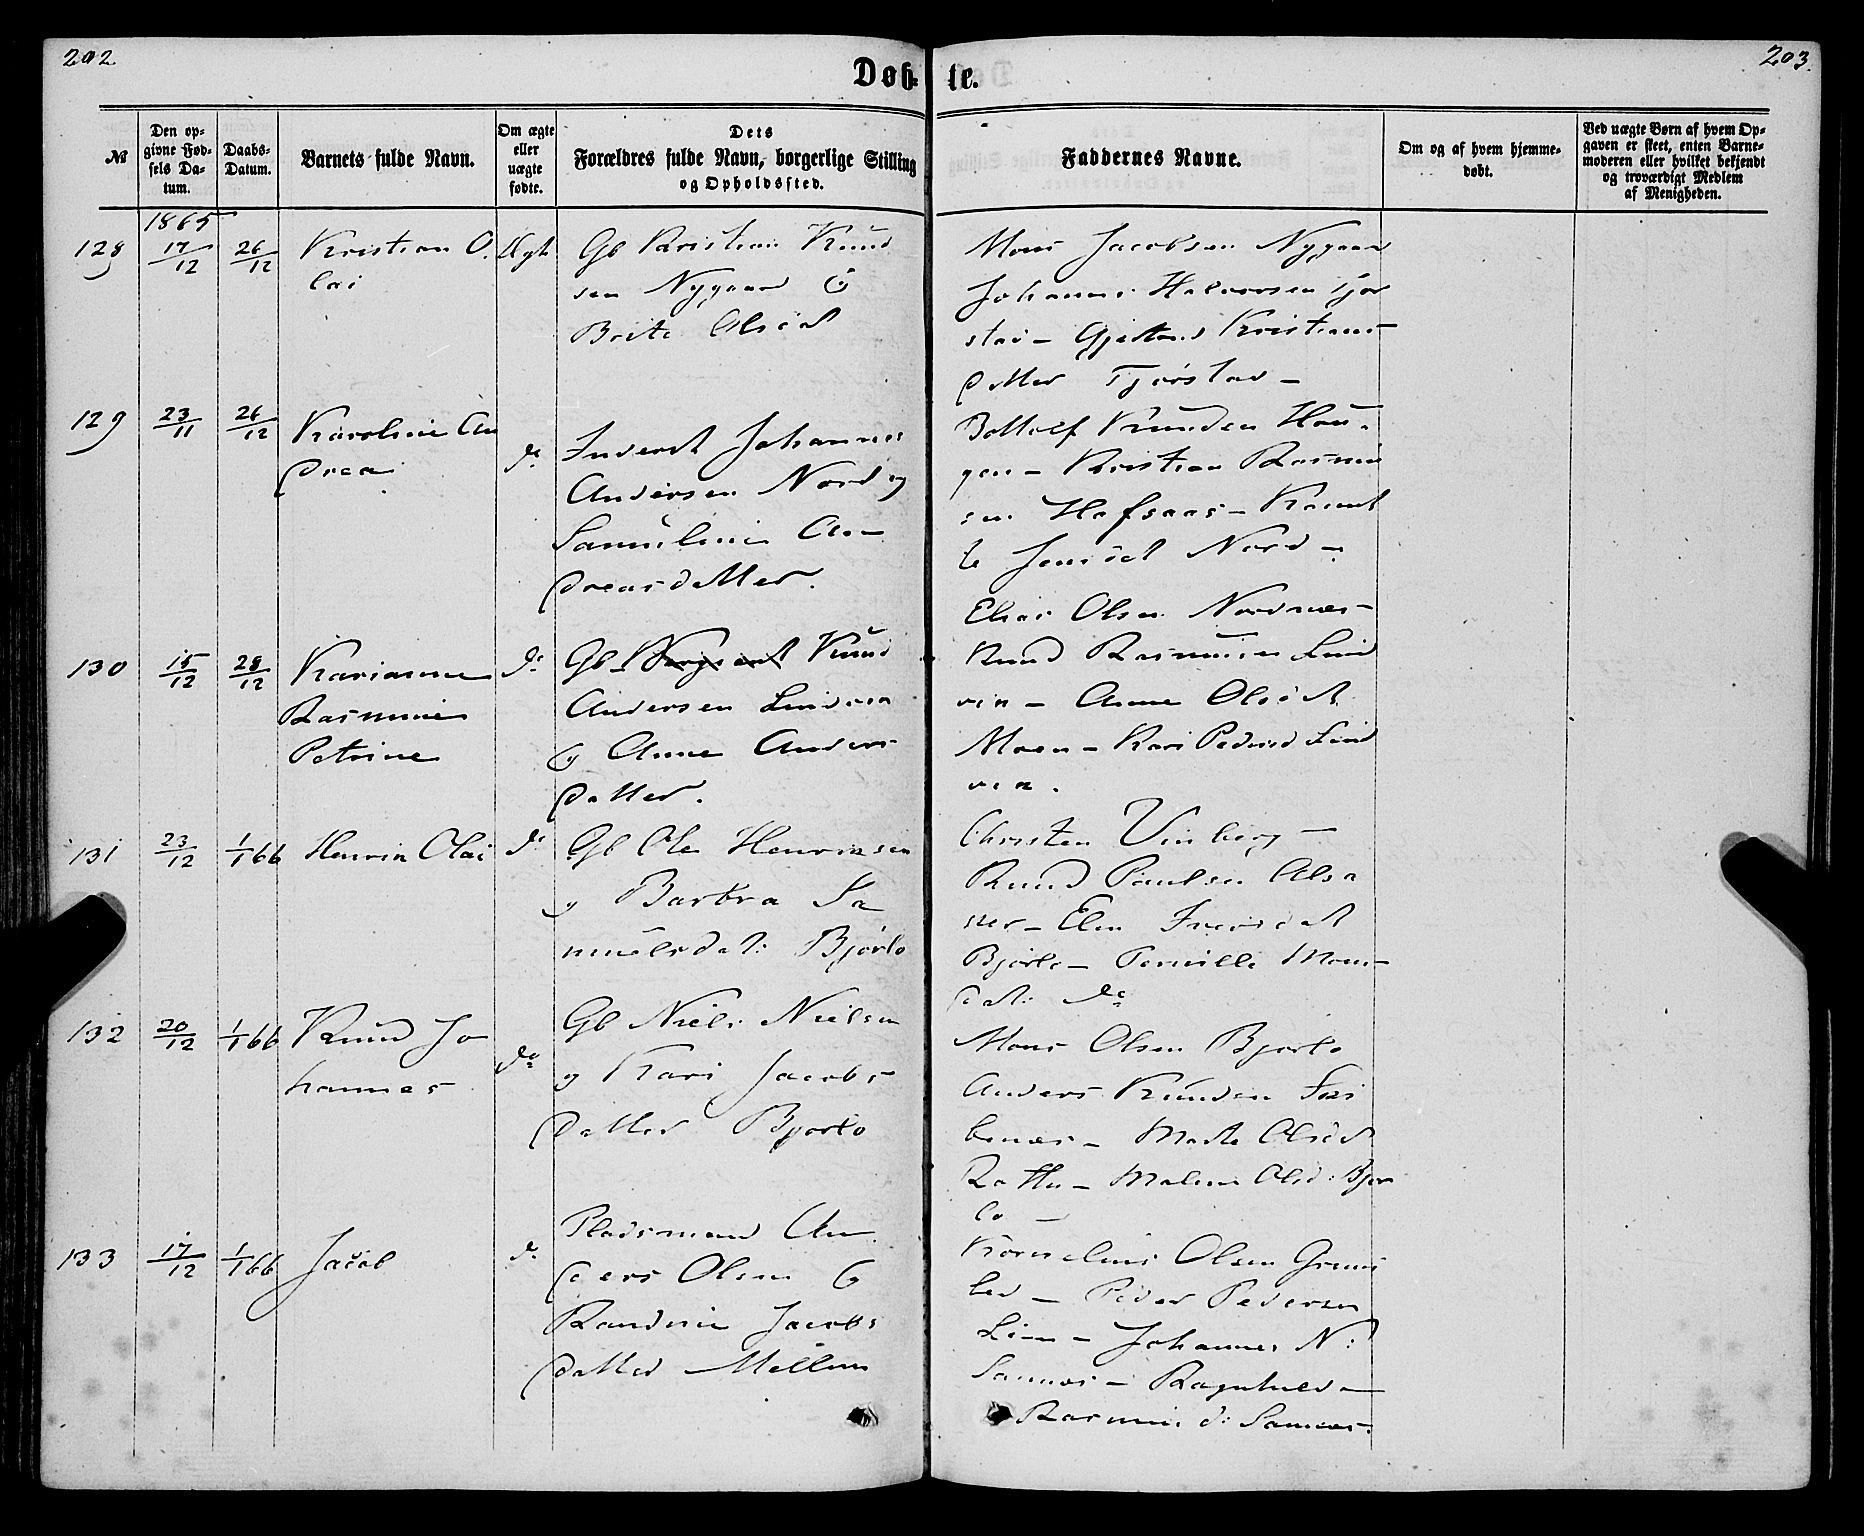 202.
203.
Døb-
te.
№
Den op-
givne Fød-
sels Da-
tum.
Daabs-
Datum.
Barnets fulde Navn.
Om ægte
eller
uægte
fødte.
Dets
Forældres fulde Navn, borgerlige Stilling
og Opholdssted.
Faddernes Navne.
Om og af hvem hjemme-
døbt.
Ved uægte Børn af hvem Op-
gaven er skeet, enten Barne-
moderen eller hvilket bekjendt
og troværdigt Medlem
af Menigheden.
1865
128
17/12
26/12
Kristian O.
lai
Gb Kristian Knud
sen Nygaard &
Brite Olsdt
Mons Jacobsen Nygaar
Johannes Halvorsen Tjor
stad - Kristians
datter Tjørstad -
129
23/11
26/12
Karoline An
drea
do
Inderst Johannes
Andersen Nord og
Samuline An-
dreasdatter.
Bottolf Knudsen Hou-
gen - Kristian Rasmu
sen Hafsaas -
Jensdt Nord -
Elias Olsen Nordnæs -
130
15/12
28/12
Karianne
Rasmine
Petrine
do
Gb Knud
Andersen Lindvia
& Anne Anders
datter.
Knud Rasmussen Lind
via - Anne Olsdt
Moen - Kari Pedersd Lind
via.
131
23/12
1/1 66
Henrik Olai
do
Gb Ole Henriksen
& Barbra Sa
muelsdat: Bjørlo
Christen Vinberg -
Knud Paulsen Alsa
ker - Elen Iversdat
Bjørlo - Pernille Mons-
dat: do
132
20/12
1/1 66
Knud Jo
hannes
do
Gb Niels Nielsen
& Kari Jacobs
datter Bjørlo
Mons Olsen Bjørlo
Anders Knudsen
Marte Olsdt
Malene Olsd: Bjør
lo -
133
17/12
1/1 66
Jacob
do
Pladsmand An
ders Olsen &
Randine Jacobs
datter Mellem
Kornelius Olsen
Peder Pedersen
Johannes N:
Sannæs - Ragnhild -
Rasmus d: Sannæs.